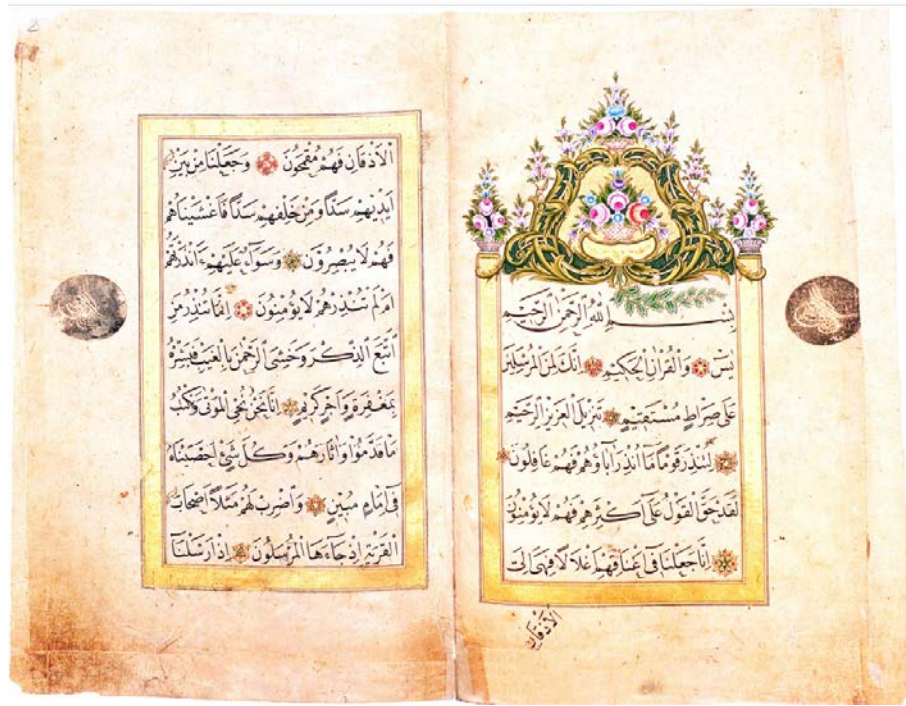 بِسْمِ اللهِ الرَّحْمٰنِ الرَّحِيمِ
يٰسۤ وَالْقُرْاٰنِ الْحَكِيمِ اِنَّكَ لَمِنَ الْمُرْسَلِينَ
عَلٰى صِرَاطٍ مُسْتَقِيمٍ تَنْزِيلَ الْعَزِيزِ الرَّحِيمِ
لِتُنْذِرَ قَوْمًا مَٓا اُنْذِرَ اٰبَٓاؤُهُمْ فَهُمْ غَافِلُونَ
لَقَدْ حَقَّ الْقَوْلُ عَلٰٓى اَكْثَرِهِمْ فَهُمْ لَا يُؤْمِنُونَ
اِنَّا جَعَلْنَا فٓى اَعْنَاقِهِمْ اَغْلَالًا فَهِىَ اِلَى
الْاَذْقَانِ
الْاَذْقَانِ فَهُمْ مُقْمَحُونَ وَجَعَلْنَا مِنْ بَيْنِ
اَيْدِيهِمْ سَدًّا وَمِنْ خَلْفِهِمْ سَدًّا فَاَغْشَيْنَاهُمْ
فَهُمْ لَا يُبْصِرُونَ وَسَوَٓاءٌ عَلَيْهِمْ ءَاَنْذَرْتَهُمْ
اَمْ لَمْ تُنْذِرْهُمْ لَا يُؤْمِنُونَ اِنَّمَا تُنْذِرُ مَنِ
اتَّبَعَ الذِّكْرَ وَخَشِىَ الرَّحْمٰنَ بِالْغَيْبِ فَبَشِّرْهُ
بِمَغْفِرَةٍ وَاَجْرٍ كَرِيمٍ اِنَّا نَحْنُ نُحْىِ الْمَوْتٰى وَنَكْتُبُ
مَا قَدَّمُوا وَاٰثَارَهُمْ وَكُلَّ شَىْءٍ اَحْصَيْنَاهُ
فٓى اِمَامٍ مُبِينٍ وَاضْرِبْ لَهُمْ مَثَلًا اَصْحَابَ
الْقَرْيَةِ اِذْ جَٓاءَهَا الْمُرْسَلُونَ اِذْ اَرْسَلْنَٓا